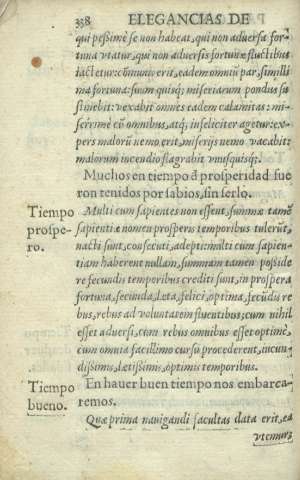 398 ELEGANCIAS DE
qui pessimè se non habeat, qui non aduersa for-
tuna vtatur, qui non aduersis fortunæ fluctibus
iactetur: cõmunis erit, eadem omniũ par, simillima
ma fortuna: suum quisq; miseriarum pondus su
stinebit: vexabit omnes eadem calamitas: mi-
serrimè cũ omnibus, atq; infeliciter agetur: ex-
pers malorũ nemo erit, miserijs nemo vacabit:
malorum incendio flagrabit vnusquisq;.
Muchos en tiempo d̃ prosperidad fue
ron tenidos por sabios, sin serlo.
Tiempo
prospe-
ro.
Multi cum sapientes non essent, summæ tamẽ
sapientiæ nomen prosperis temporibus tulerũt,
nacti sunt, consecuti, adepti: multi cum sapien-
tiam haberent nullam, summam tamen posside
re secundis temporibus crediti sunt, in prospera
fortuna, secunda, læta, felici, optima, secũdis re
bus, rebus ad voluntatem fluentibus; cum nihil
esset aduersi, cum rebus omnibus esset optimè,
cum omnia facillimo cursu procederent, iucun-
dissimis, lætissimis, optimis temporibus.
Tiempo
bueno.
En hauer buen tiempo nos embarca-
remos.
Quæ prima nauigandi facultas data erit, ea
vtemur